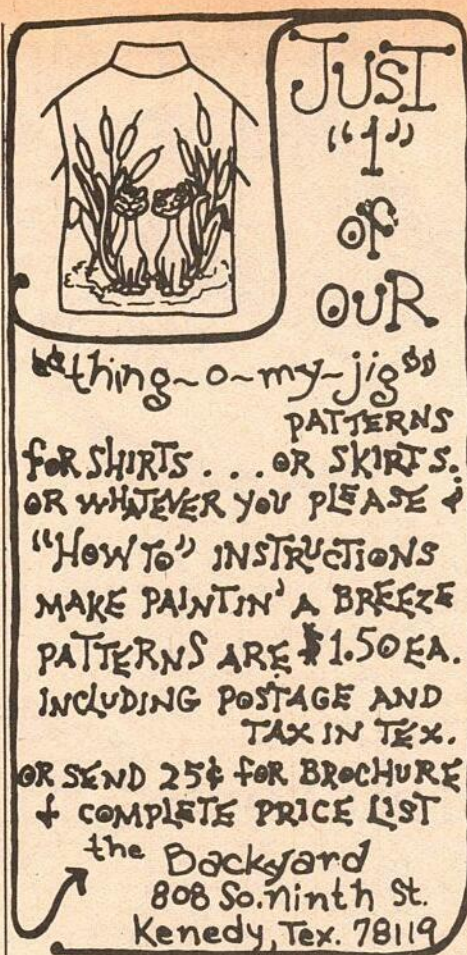 JUST
"1"
OF
OUR
"thing~o~my~jig"
PATTERNS
FOR SHIRTS . . . OR SKIRTS.
OR WHATEVER YOU PLEASE &
"HOW TO" INSTRUCTIONS
MAKE PAINTIN' A BREEZE
PATTERNS ARE $1.50 EA.
INCLUDING POSTAGE AND
TAX IN TEX.
OR SEND 25¢ FOR BROCHURE
& COMPLETE PRICE LIST
the Backyard
808 So. Ninth St.
Kenedy, Tex. 78119